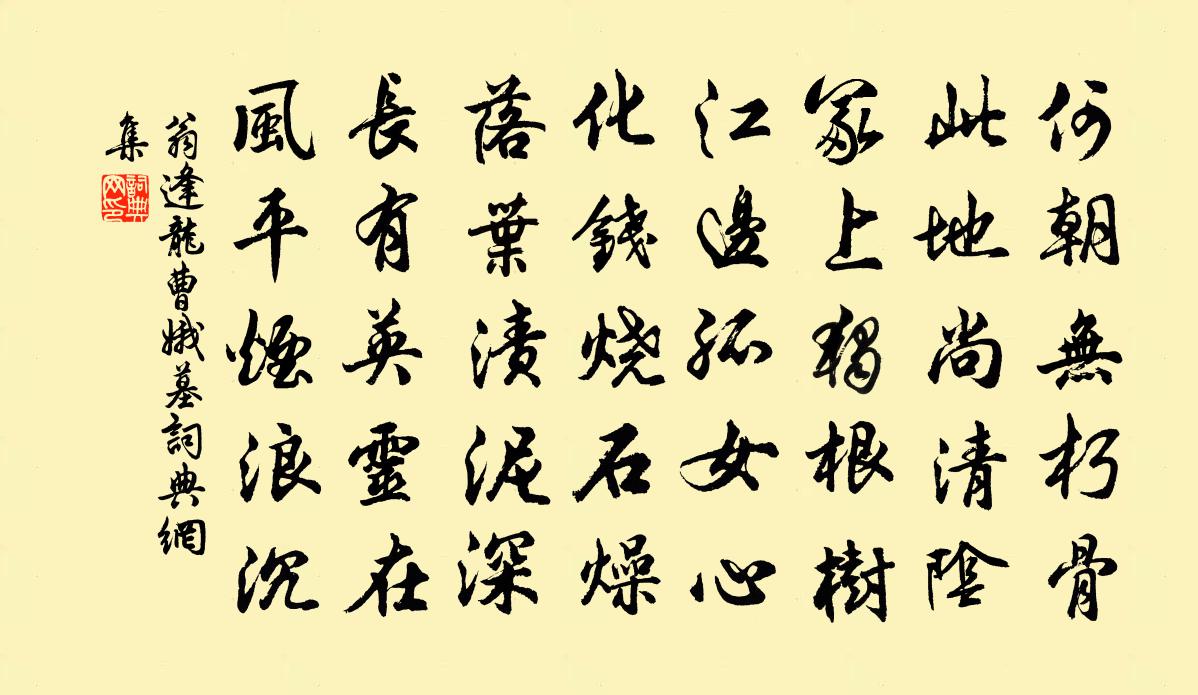 何朝無朽骨
此地尚清陰
冢上獨根樹
江邊孤女心
化錢燒石燥
落葉漬泥深
長有英靈在
風平煙浪沉
翁逢龍曹娥墓詞典網
集
詞典網印